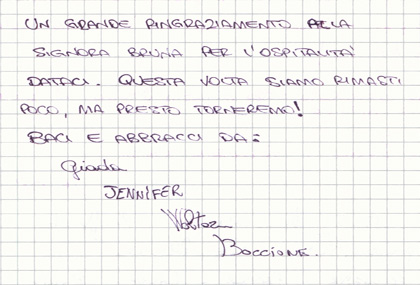 UN GRANDE RINGRAZIAMENTO ALLA
SIGNORA BRUNA PER L'OSPITALITA'
DATACI. QUESTA VOLTA SIAMO RIMASTI
POCO, MA PRESTO TORNEREMO!
BACI E ABBRACCI DA:
Giada
JENNIFER
BOCCIONE.